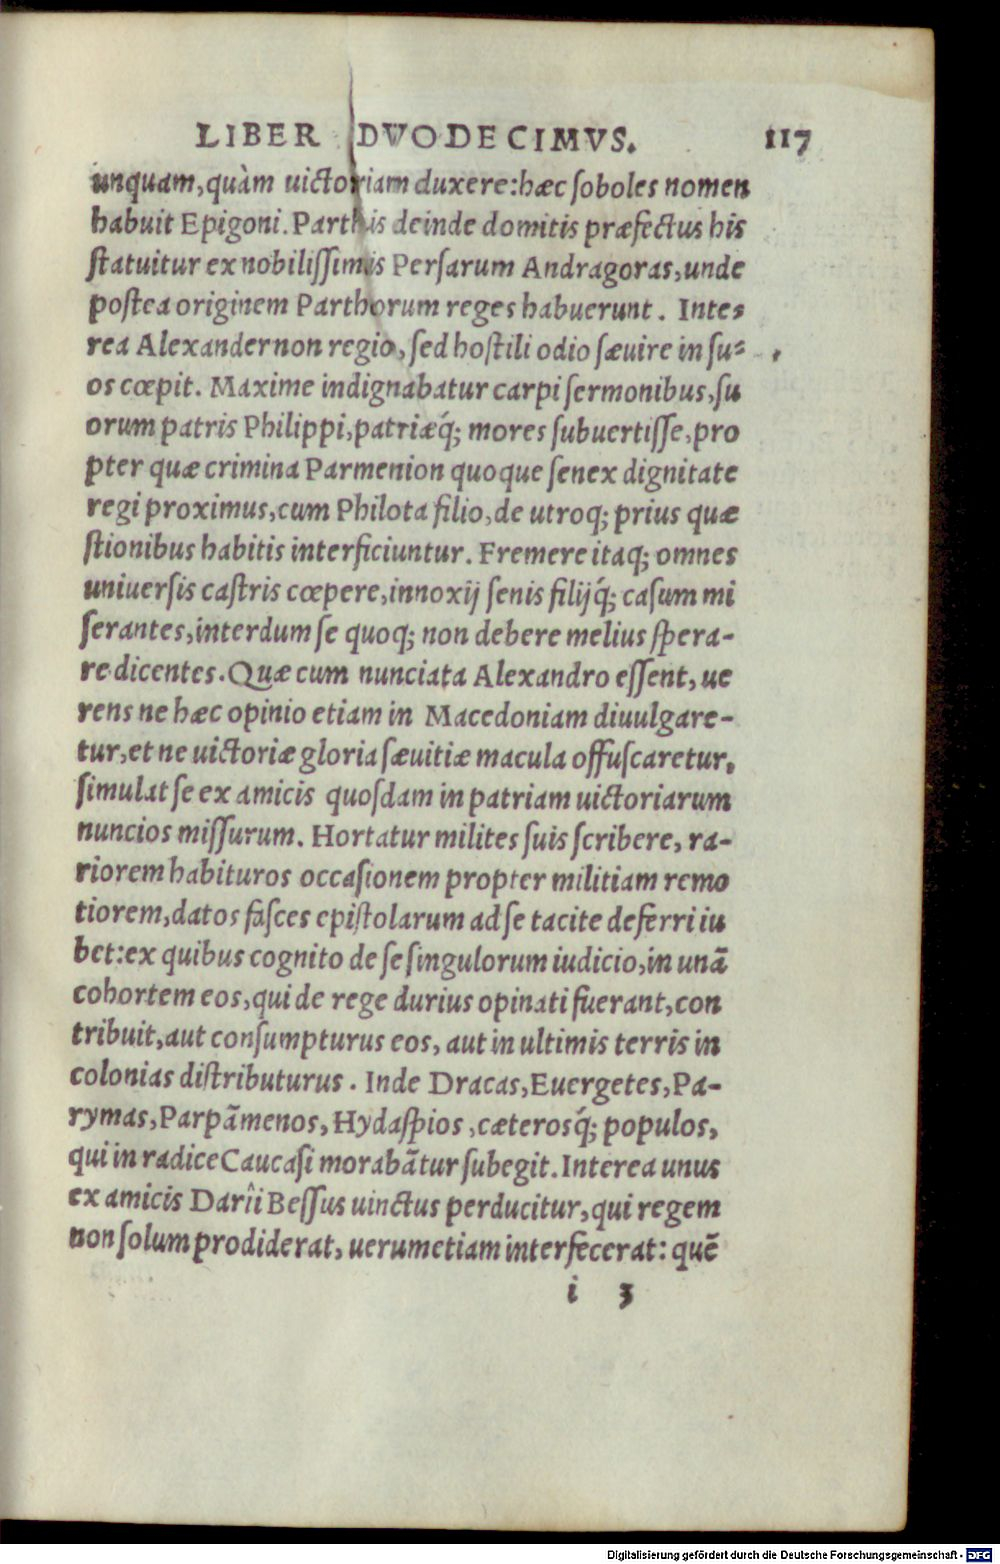 LIBER DVODECIMVS. 117
unquam, quàm uictoriam duxere: hæc soboles nomen
habuit Epigoni. Parthis deinde domitis præfectus his
statuitur ex nobilissimis Persarum Andragoras, unde
postea originem Parthorum reges habuerunt. Inte⸗
rea Alexander non regio, sed hostili odio sæuire in su⸗
os cœpit. Maxime indignabatur carpi sermonibus, su
orum patris Philippi, patriæq́; mores subuertisse, pro
pter quæ crimina Parmenion quoque senex dignitate
regi proximus, cum Philota filio, de utroq; prius quæ
stionibus habitis interficiuntur. Fremere itaq; omnes
uniuersis castris cœpere, innoxij senis filijq́; casum mi
serantes, interdum se quoq; non debere melius spera-
re dicentes. Quæ cum nunciata Alexandro essent, ue
rens ne hæc opinio etiam in Macedoniam diuulgare-
tur, et ne uictoriæ gloria sæuitiæ macula offuscaretur,
simulat se ex amicis quosdam in patriam uictoriarum
nuncios missurum. Hortatur milites suis scribere, ra-
riorem habituros occasionem propter militiam remo
tiorem, datos fasces epistolarum ad se tacite deferri iu
bet: ex quibus cognito de se singulorum iudicio, in unā
cohortem eos, qui de rege durius opinati fuerant, con
tribuit, aut consumpturus eos, aut in ultimis terris in
colonias distributurus. Inde Dracas, Euergetes, Pa-
rymas, Parpāmenos, Hydaspios, cæterosq́; populos,
qui in radice Caucasi morabātur subegit. Interea unus
ex amicis Darîi Bessus uinctus perducitur, qui regem
non solum prodiderat, uerumetiam interfecerat: quē
i 3
Digitalisierung gefördert durch die Deutsche Forschungsgemeinschaft - DFG